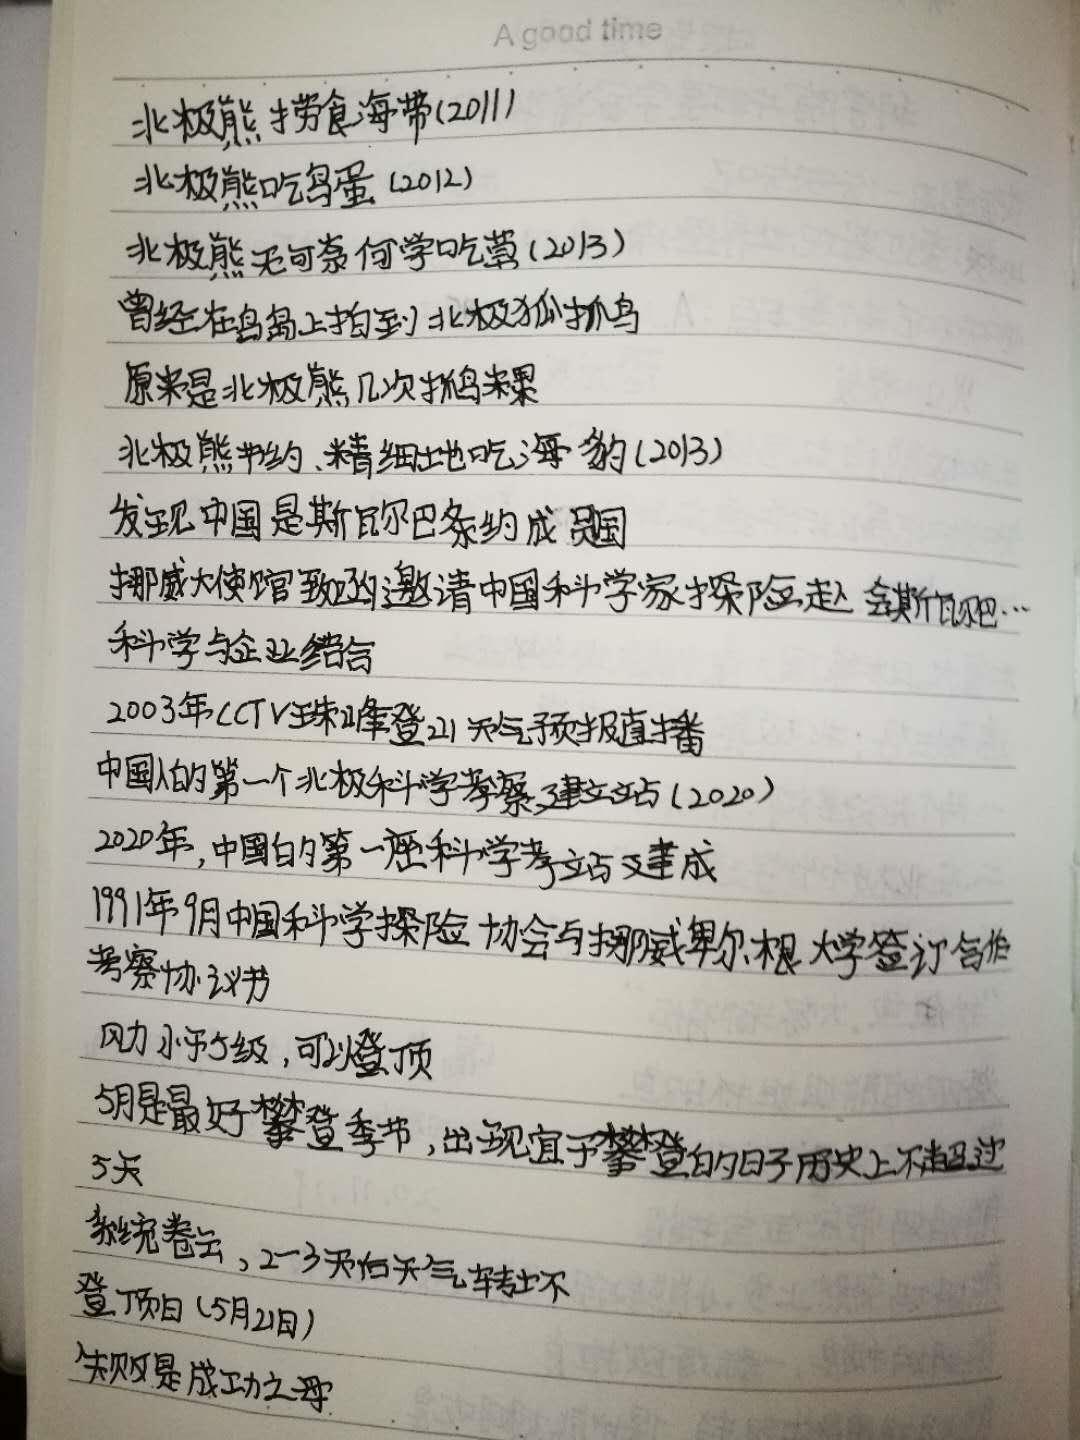 A good time
北极熊捞食海带(2011)
北极熊吃鸟蛋(2012)
北极熊无可奈何学吃草(2013)
曾经在鸟岛上拍到北极狐抓鸟
原来是北极熊几次抓鸟未果
北极熊节约、精细地吃海豹(2013)
发现中国是斯瓦尔巴条约成员国
挪威大使馆致函邀请中国科学家探险赴会斯瓦尔巴…
科学与企业结合
2003年CCTV珠峰登山天气预报直播
中国人的第一个北极科学考察建立站(2020)
2020年,中国的第一座科学考站建成
1991年9月中国科学探险协会与挪威卑尔根大学签订合作
考察协议书
风力小于5级,可以登顶
5月是最好攀登季节,出现宜于攀登的日子历史上不超过
5天
系统卷云,2-3天后天气转坏
登顶日(5月21日)
失败是成功之母